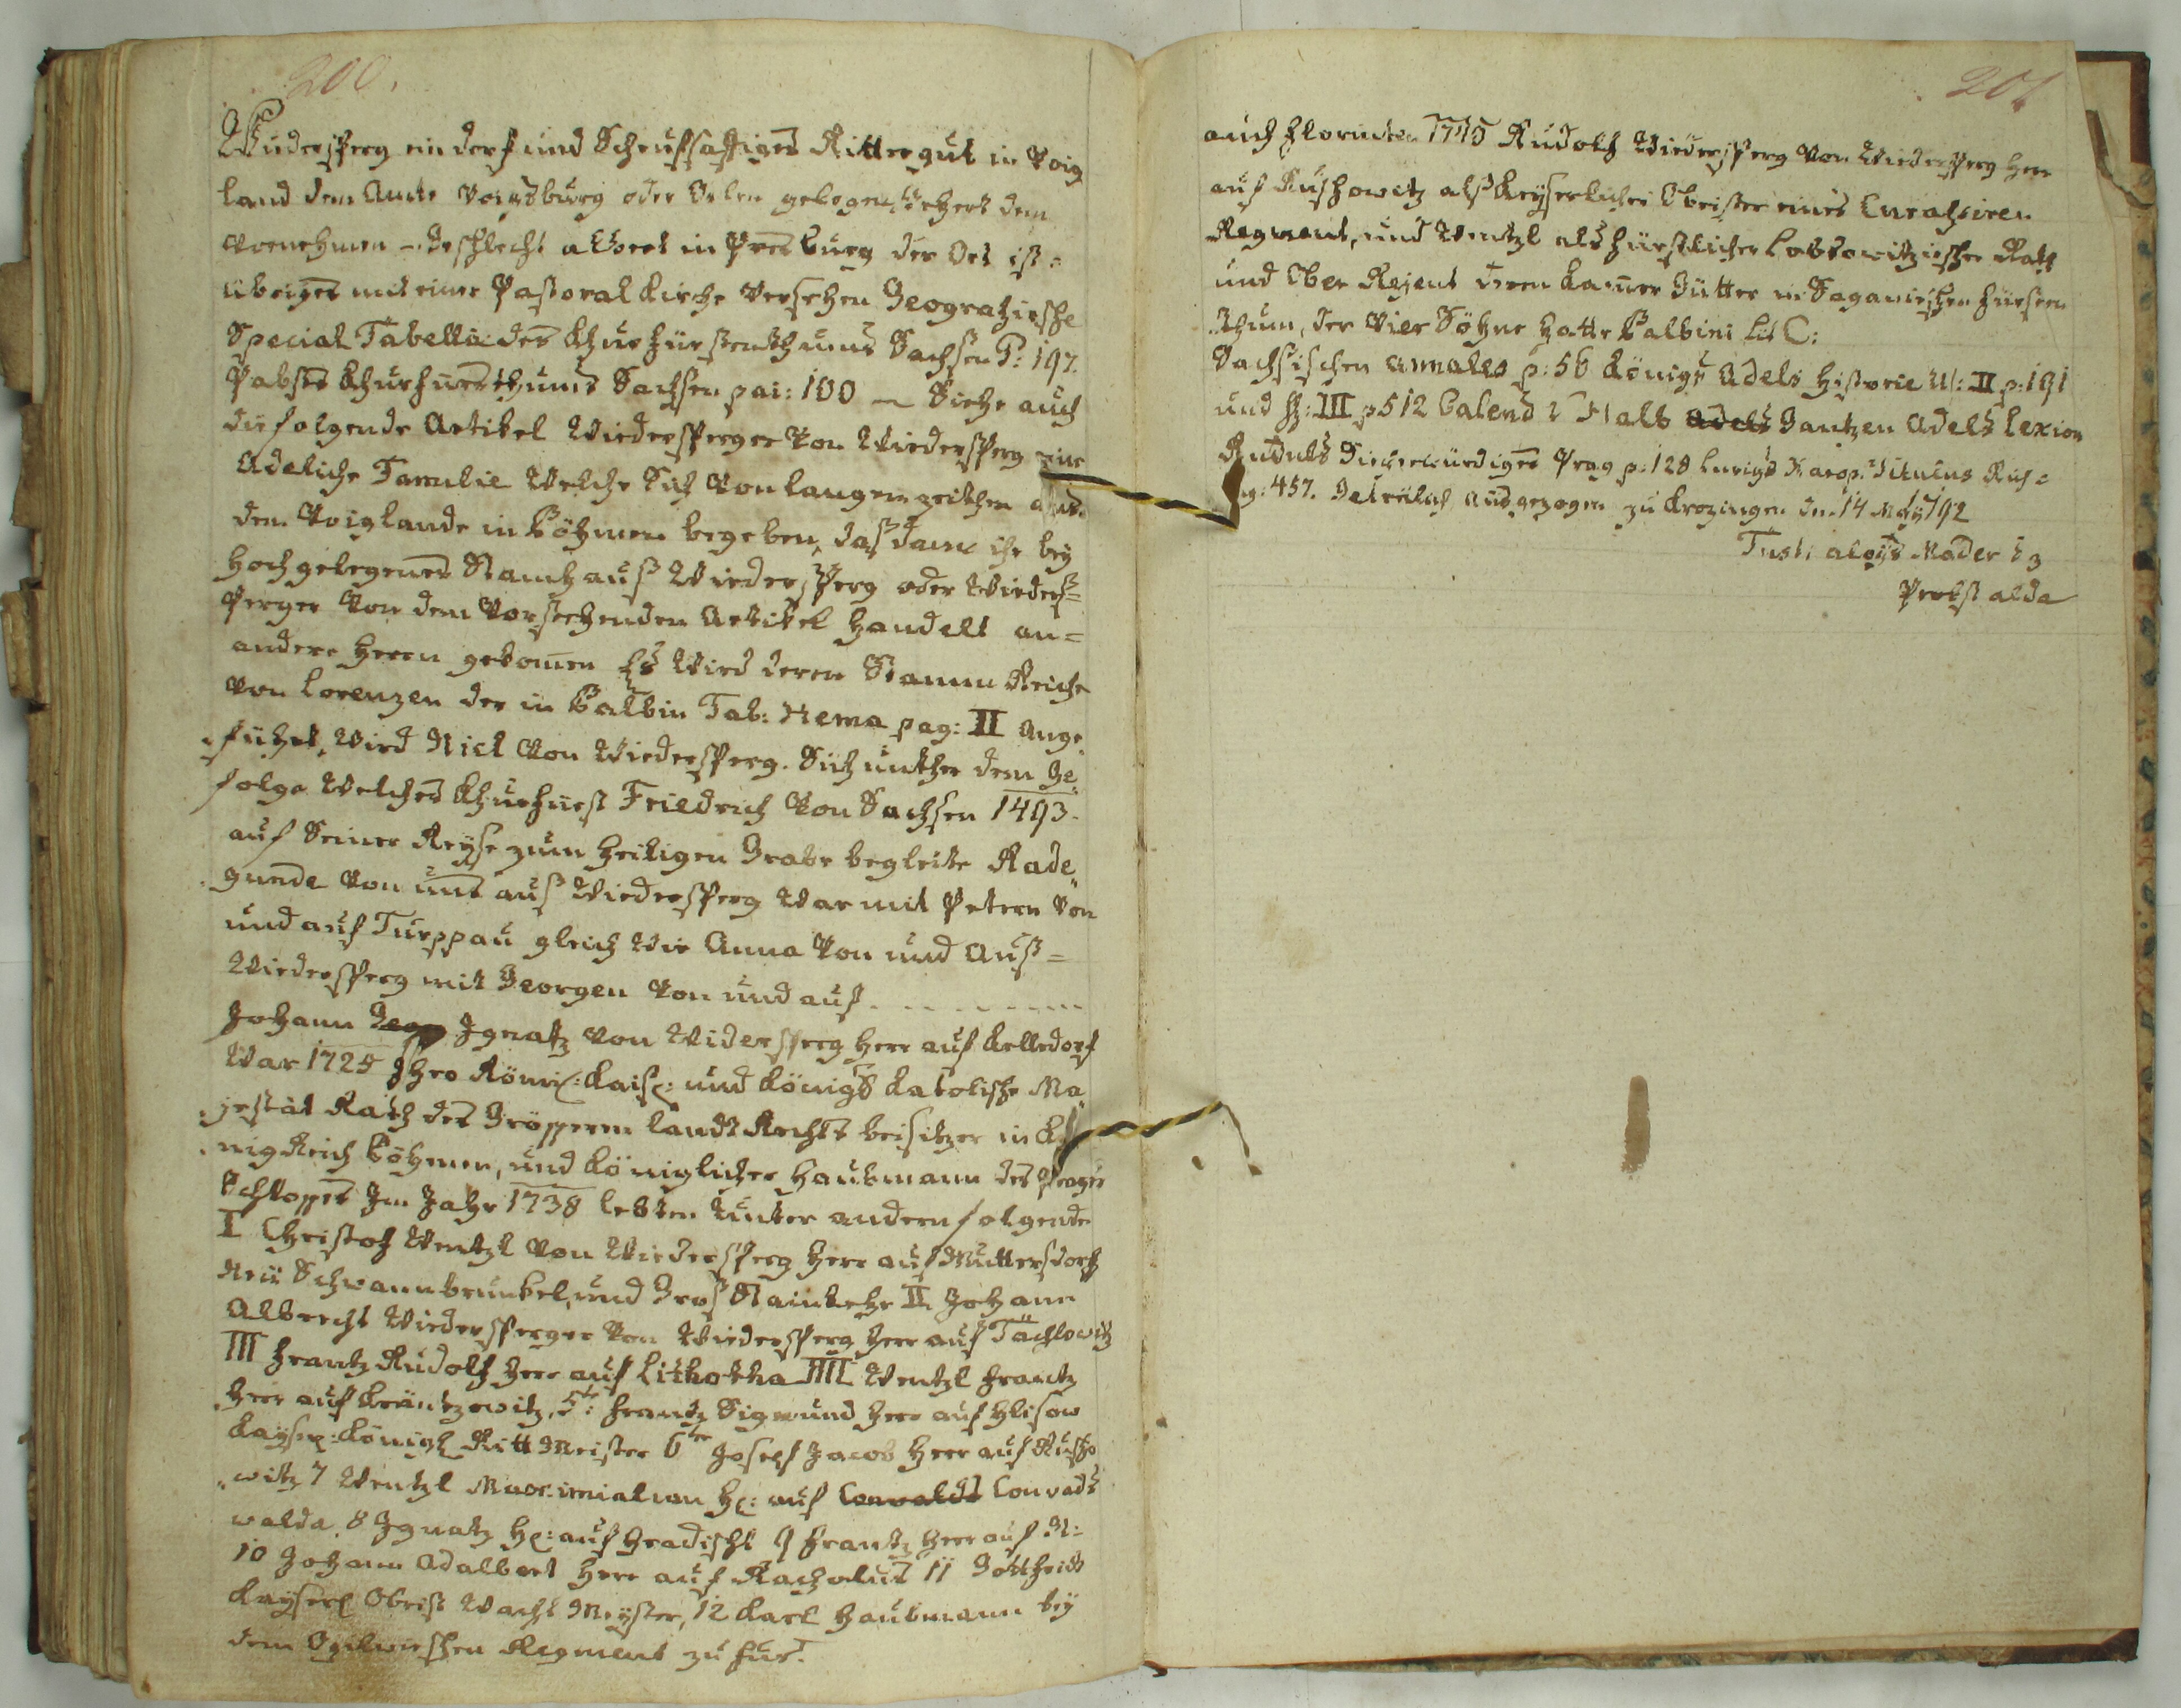 200.
Widersperg ein dorf und Schrufsaßiges Rittergut in Voig
land dem Amte Voigtsburg oder Oelen gelegen, gehert dem
Vornehmen Geschlecht alldort in Presburg der Ort ist =
übriges mit einer Pastoral Kirche Versehen Geograhische
Special Tabella des Churfürstenthums Sachsen P: 197.
Pabsts Churfürstthums Sachsen pai: 100 – Siehe auch
die folgende Artikel Wiedersperger Von Wiedersperg eine
Adeliche Familie Welche Sich Von langem zeithen aus
dem Voiglande in Böhmen begeben, daß dann ihr bey
Hoch gelegenes Stamhauß Wiedersperg oder Wieders=
perger Von dem Vorstehenden Artikel handelt an=
andere Herrn gekomen Es Wird deren Stamm Reihe
Von Lorenzen der in Balbin Tab: Stema pag: II Ange„
„führet, Wird Nicl Von Wiedersperg. Sich unther dem Ge„
folge Welches Churfürst Friedrich Von Sachsen 1493.
auf Seiner Reyse zum Heiligen Grabe begleite Rade„
„gunda Von und auß Wiedersperg War mit Petern Von
und auf Turppau gleich Wie Anna Von und Auß=
Wiedersperg mit Georgen Von und auf - - - - - - - -
Johann Ignatz Von Widersperg Herr auf Kelledorf
War 1725 Ihro Römi: Kais: und Königs Katolische Ma„
„jestät Rath des Gröppern landt Rechts beisitzer in Kö
„nigReich Böhmen, und Königlicher Haubmann des Prager
Schlosses Im Jahr 1738 lebten Unter andern folgende
I Christof Wentzl Von Wiedersperg Herr auf Muttersdorf
Neu Schwannbrunkel, und Groß Mainkehr II Johann
Albrecht Wiedersperger Von Wiedersperg Herr auf Tächlowitz
III Frantz Rudolf Herr auf Lithotha IIII Wentzl Frantz
Herr auf Kräntzowitz, 5te: Frantz Sigmund Herr auf Hlisow
Kayser: Königl RittMeister 6te Joseph Jacob Herr auf Rusho
„witz 7 Wentzl Maximialian H: auf Conrads
walda. 8 Ignatz H: auf Hradischt 9 Frantz Herr auf N:
10 Johann Adalbert Herr auf Racholus 11 Gottfrid
Kayserl Obrist Wacht Meyster, 12 Karl Haubmann bey
dem Ogilwischen Regment zu fus.
201
auch Florirten 1740 Rudolf Wiedersperg Von Wiedersperg Herr
auf Rushowitz alß Keyserlicher Obrister eines Curahsiren
Regment, und Wentzl als fürstlicher Lobkowitzischer Rath
und Ober Regent deren Kamer Gütter in Saganischen fürsten
thum, der Vier Söhne hatte Balbini lit C:
Sachsischen annales p: 56 Königs Adels Historie Th: II p: 191
und th: III p 512 Calend Stalb Gantzen Adels Lexion
Denckwürdiges Prag p: 128 Lucigs Europ:
ag: 457. Getreülich Ausgezogen zu Krozingen den 14 May 792
Tusti aloys Mader t z
Probst alda